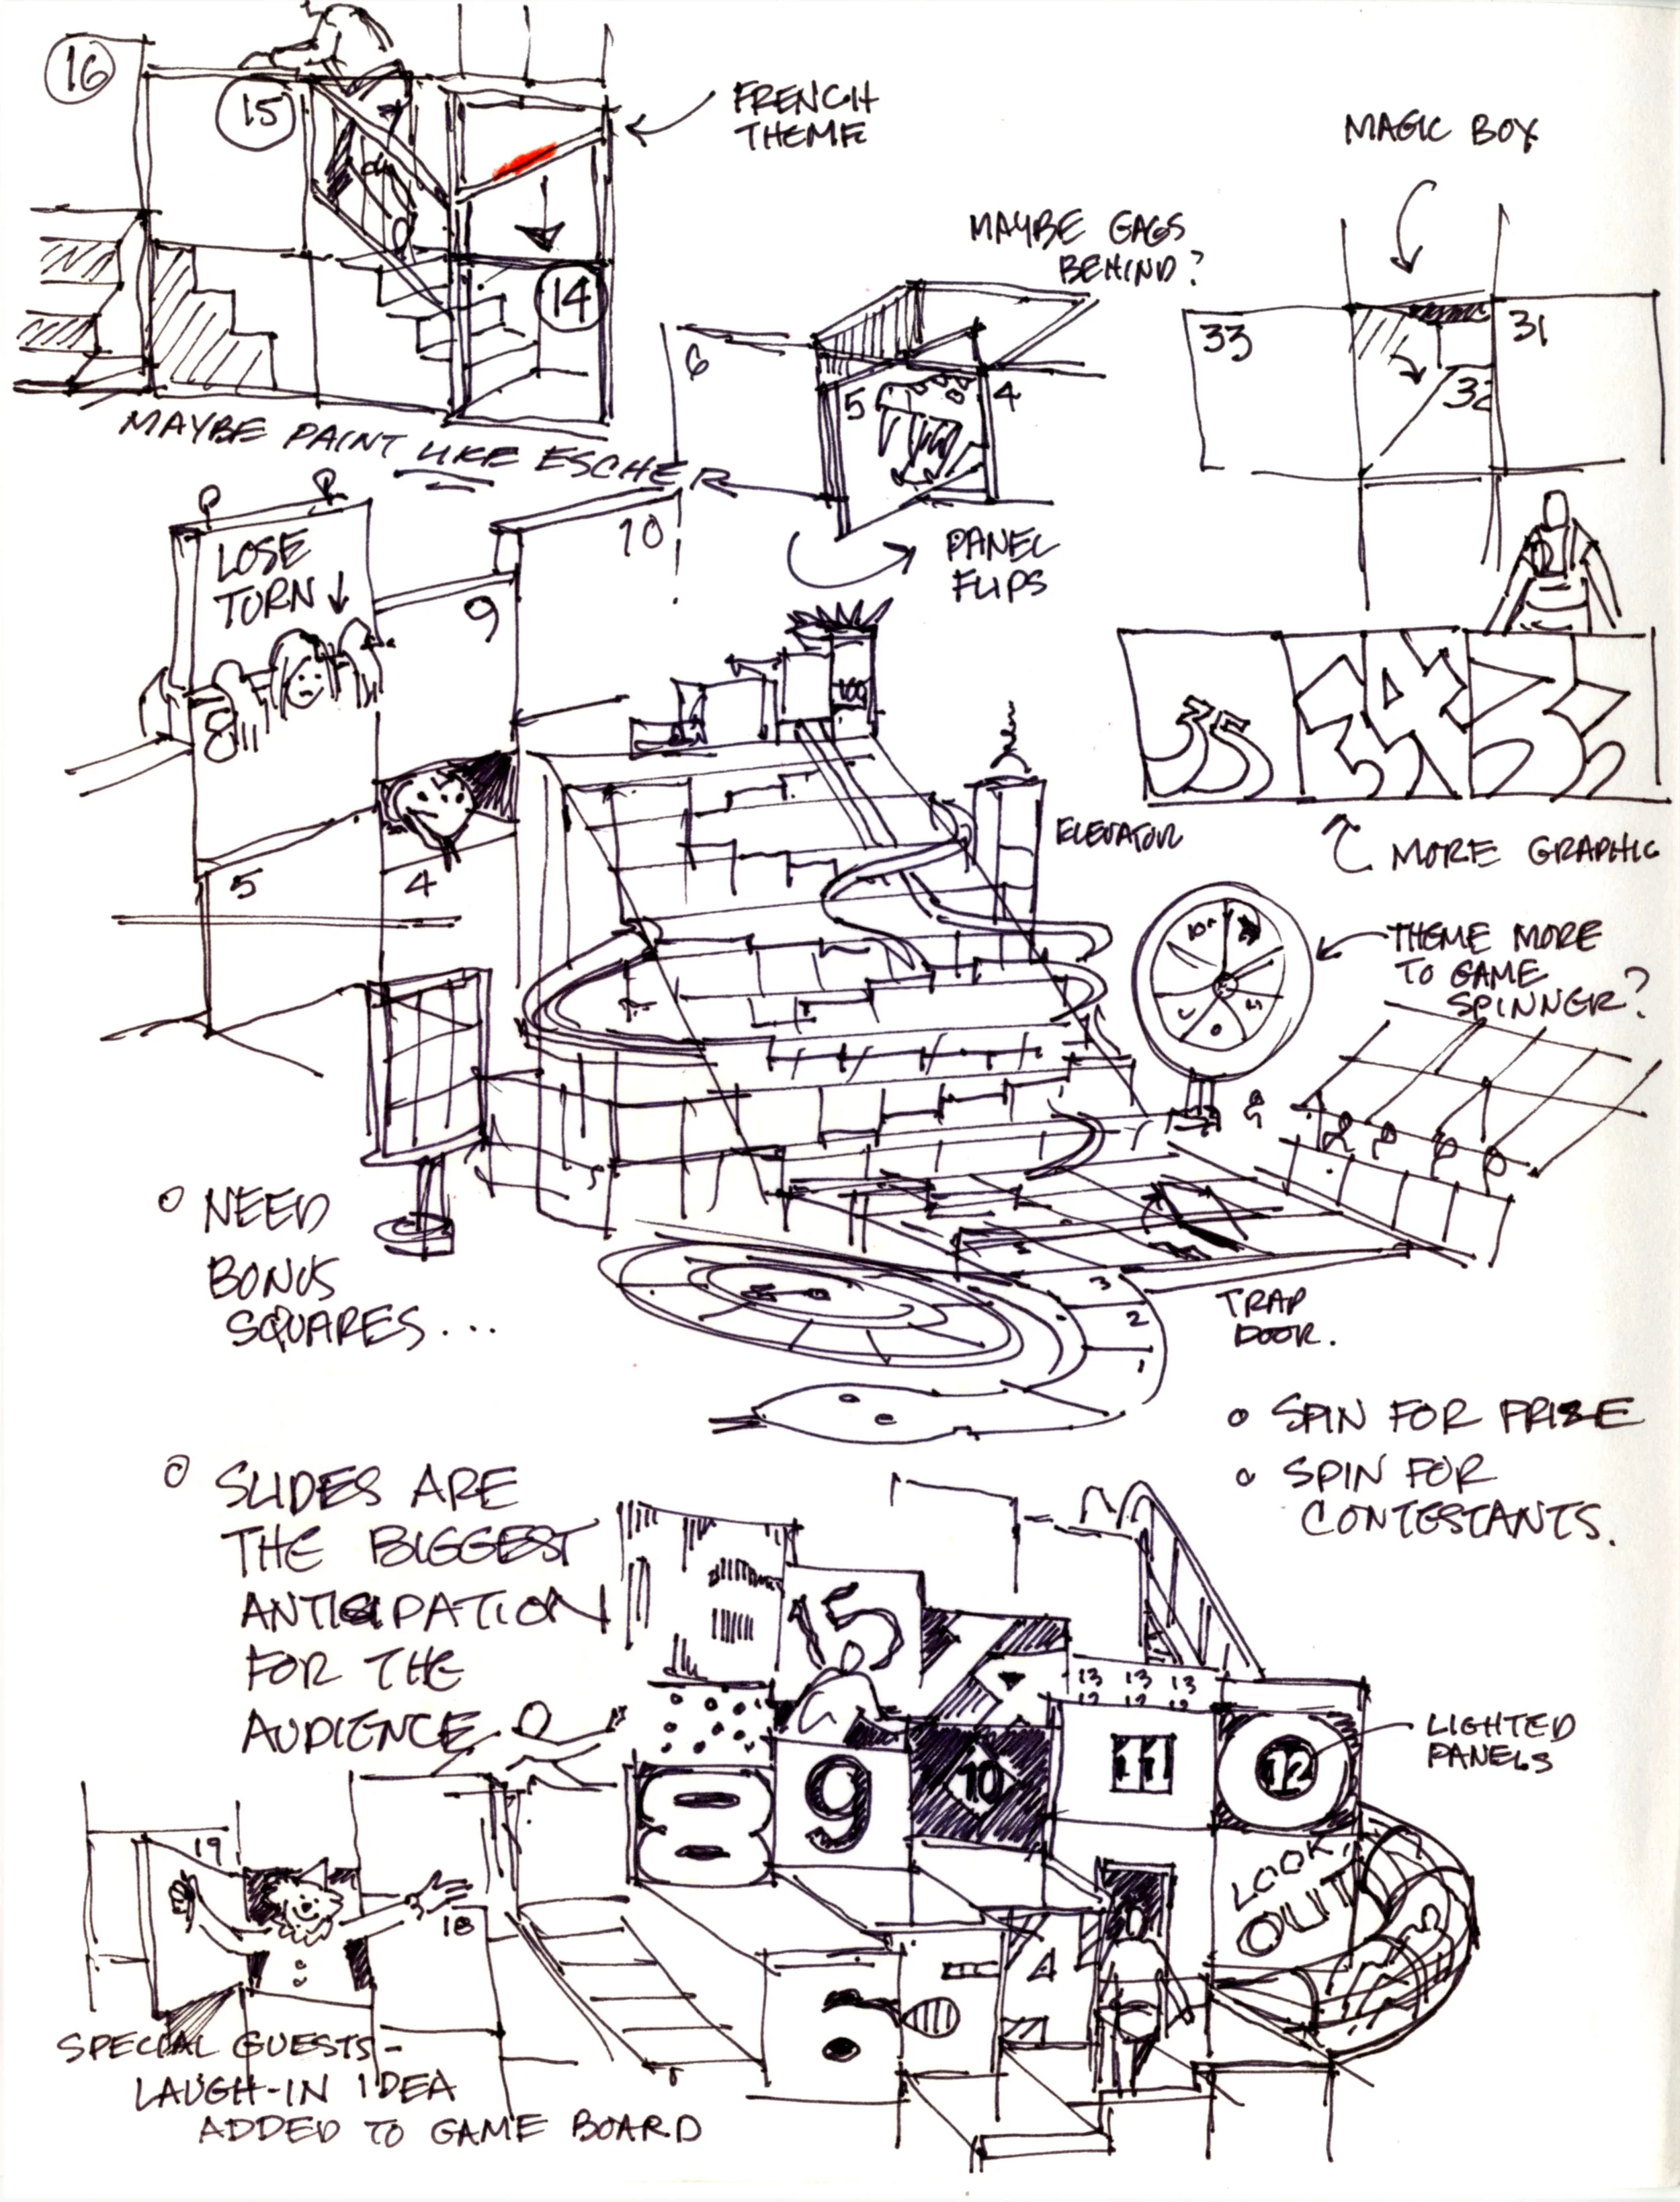 16
15
FRENCH
THEME
14
MAYBE PAINT LIKE ESCHER
MAGIC BOX
33
31
32
MAYBE GAGS
BEHIND?
6
5
4
PANEL
FLIPS
LOSE
TURN ↓
8
9
10
5
4
100
ELEVATOR
35
34
33
MORE GRAPHIC
THEME MORE
TO GAME
SPINNER?
3
2
1
TRAP
DOOR.
○ NEED
BONUS
SQUARES...
○ SPIN FOR PRIZE
○ SPIN FOR
CONTESTANTS.
○ SLIDES ARE
THE BIGGEST
ANTICIPATION
FOR THE
AUDIENCE
15
13 13 13
8
9
10
11
12
LIGHTED
PANELS
LOOK
OUT
4
19
18
SPECIAL GUESTS-
LAUGH-IN IDEA
ADDED TO GAME BOARD